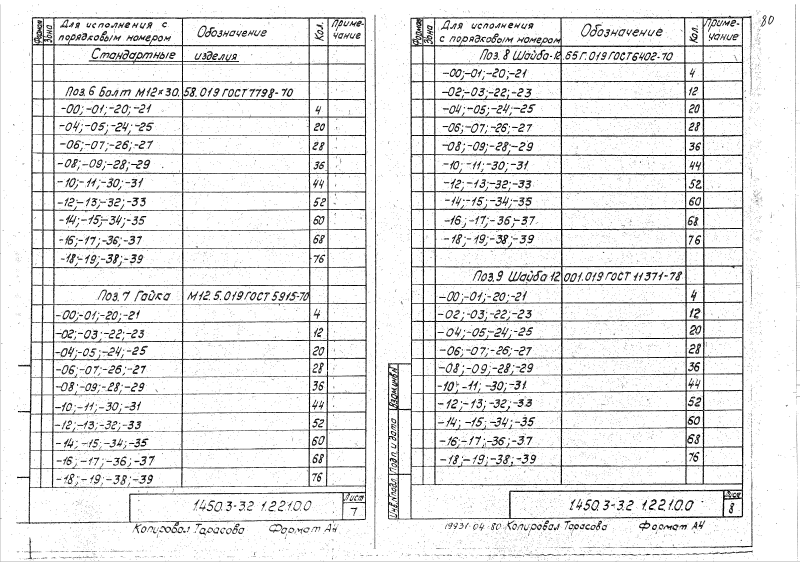 Формат Зона Для исполнения с порядковым номером Обозначение Кол. Примечание
Стандартные изделия
Поз. 6 Болт М12×30.58.019 ГОСТ 7798-70
-00;-01;-20;-21 4
-04;-05;-24;-25 20
-06;-07;-26;-27 28
-08;-09;-28;-29 36
-10;-11;-30;-31 44
-12;-13;-32;-33 52
-14;-15;-34;-35 60
-16;-17;-36;-37 68
-18;-19;-38;-39 76
Поз. 7 Гайка М12.5.019 ГОСТ 5915-70
-00;-01;-20;-21 4
-02;-03;-22;-23 12
-04;-05;-24;-25 20
-06;-07;-26;-27 28
-08;-09;-28;-29 36
-10;-11;-30;-31 44
-12;-13;-32;-33 52
-14;-15;-34;-35 60
-16;-17;-36;-37 68
-18;-19;-38;-39 76
1.450.3-3.2 1.221.0.0 Лист 7
Копировал Тарасова Формат А4
80
Формат Зона Для исполнения с порядковым номером Обозначение Кол. Приме-чание
Поз. 8 Шайба-12.65Г.019 ГОСТ 6402-70
-00;-01;-20;-21 4
-02;-03;-22;-23 12
-04;-05;-24;-25 20
-06;-07;-26;-27 28
-08;-09;-28;-29 36
-10;-11;-30;-31 44
-12;-13;-32;-33 52
-14;-15;-34;-35 60
-16;-17;-36;-37 68
-18;-19;-38;-39 76
Поз. 9 Шайба 12.001.019 ГОСТ 11371-78
-00;-01;-20;-21 4
-02;-03;-22;-23 12
-04;-05;-24;-25 20
-06;-07;-26;-27 28
-08;-09;-28;-29 36
-10;-11;-30;-31 44
-12;-13;-32;-33 52
-14;-15;-34;-35 60
-16;-17;-36;-37 68
-18;-19;-38;-39 76
Инв.№подл. Подп. и дата Взам.инв.№
1.450.3-3.2 1.221.0.0 Лист 8
19931-04 80 Копировал Тарасова Формат А4